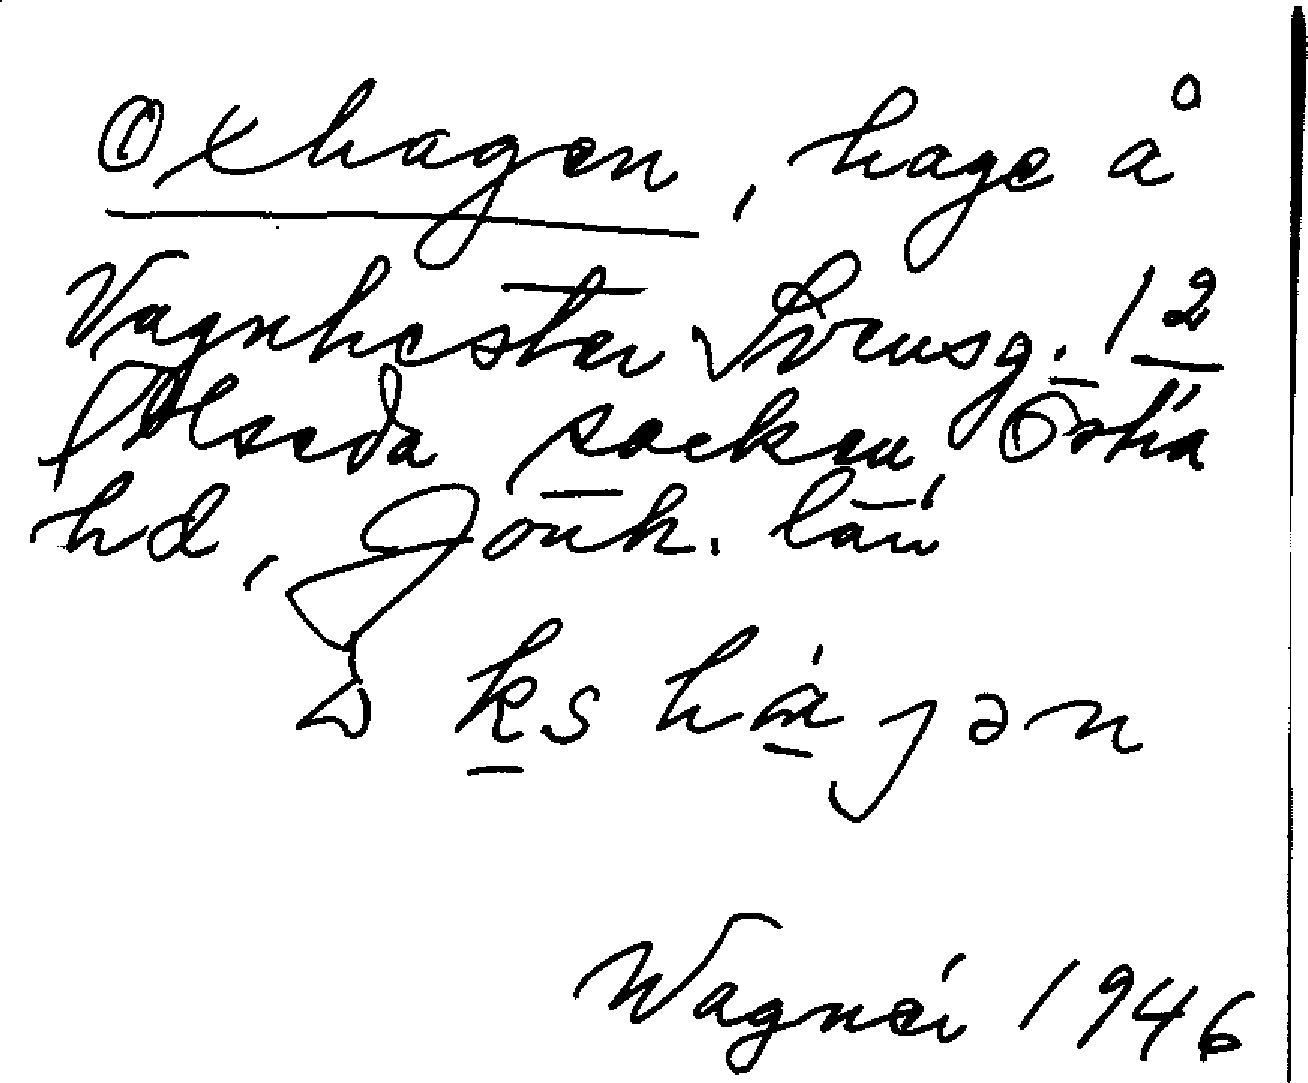 Oxhagen, hage å
Vagnhester Svensg. 12
Alseda socken Östra
hd, Jönk. län
Wagner 1946